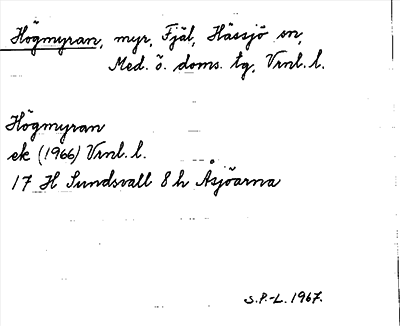 Högmyran, myr, Fjäl, Hässjö sn,
Med. ö. doms. tg, Vrnl. l.
Högmyran
ek (1966) Vrnl. l.
17 H Sundsvall 8 h Åsjöarna
S.P.-L. 1967.